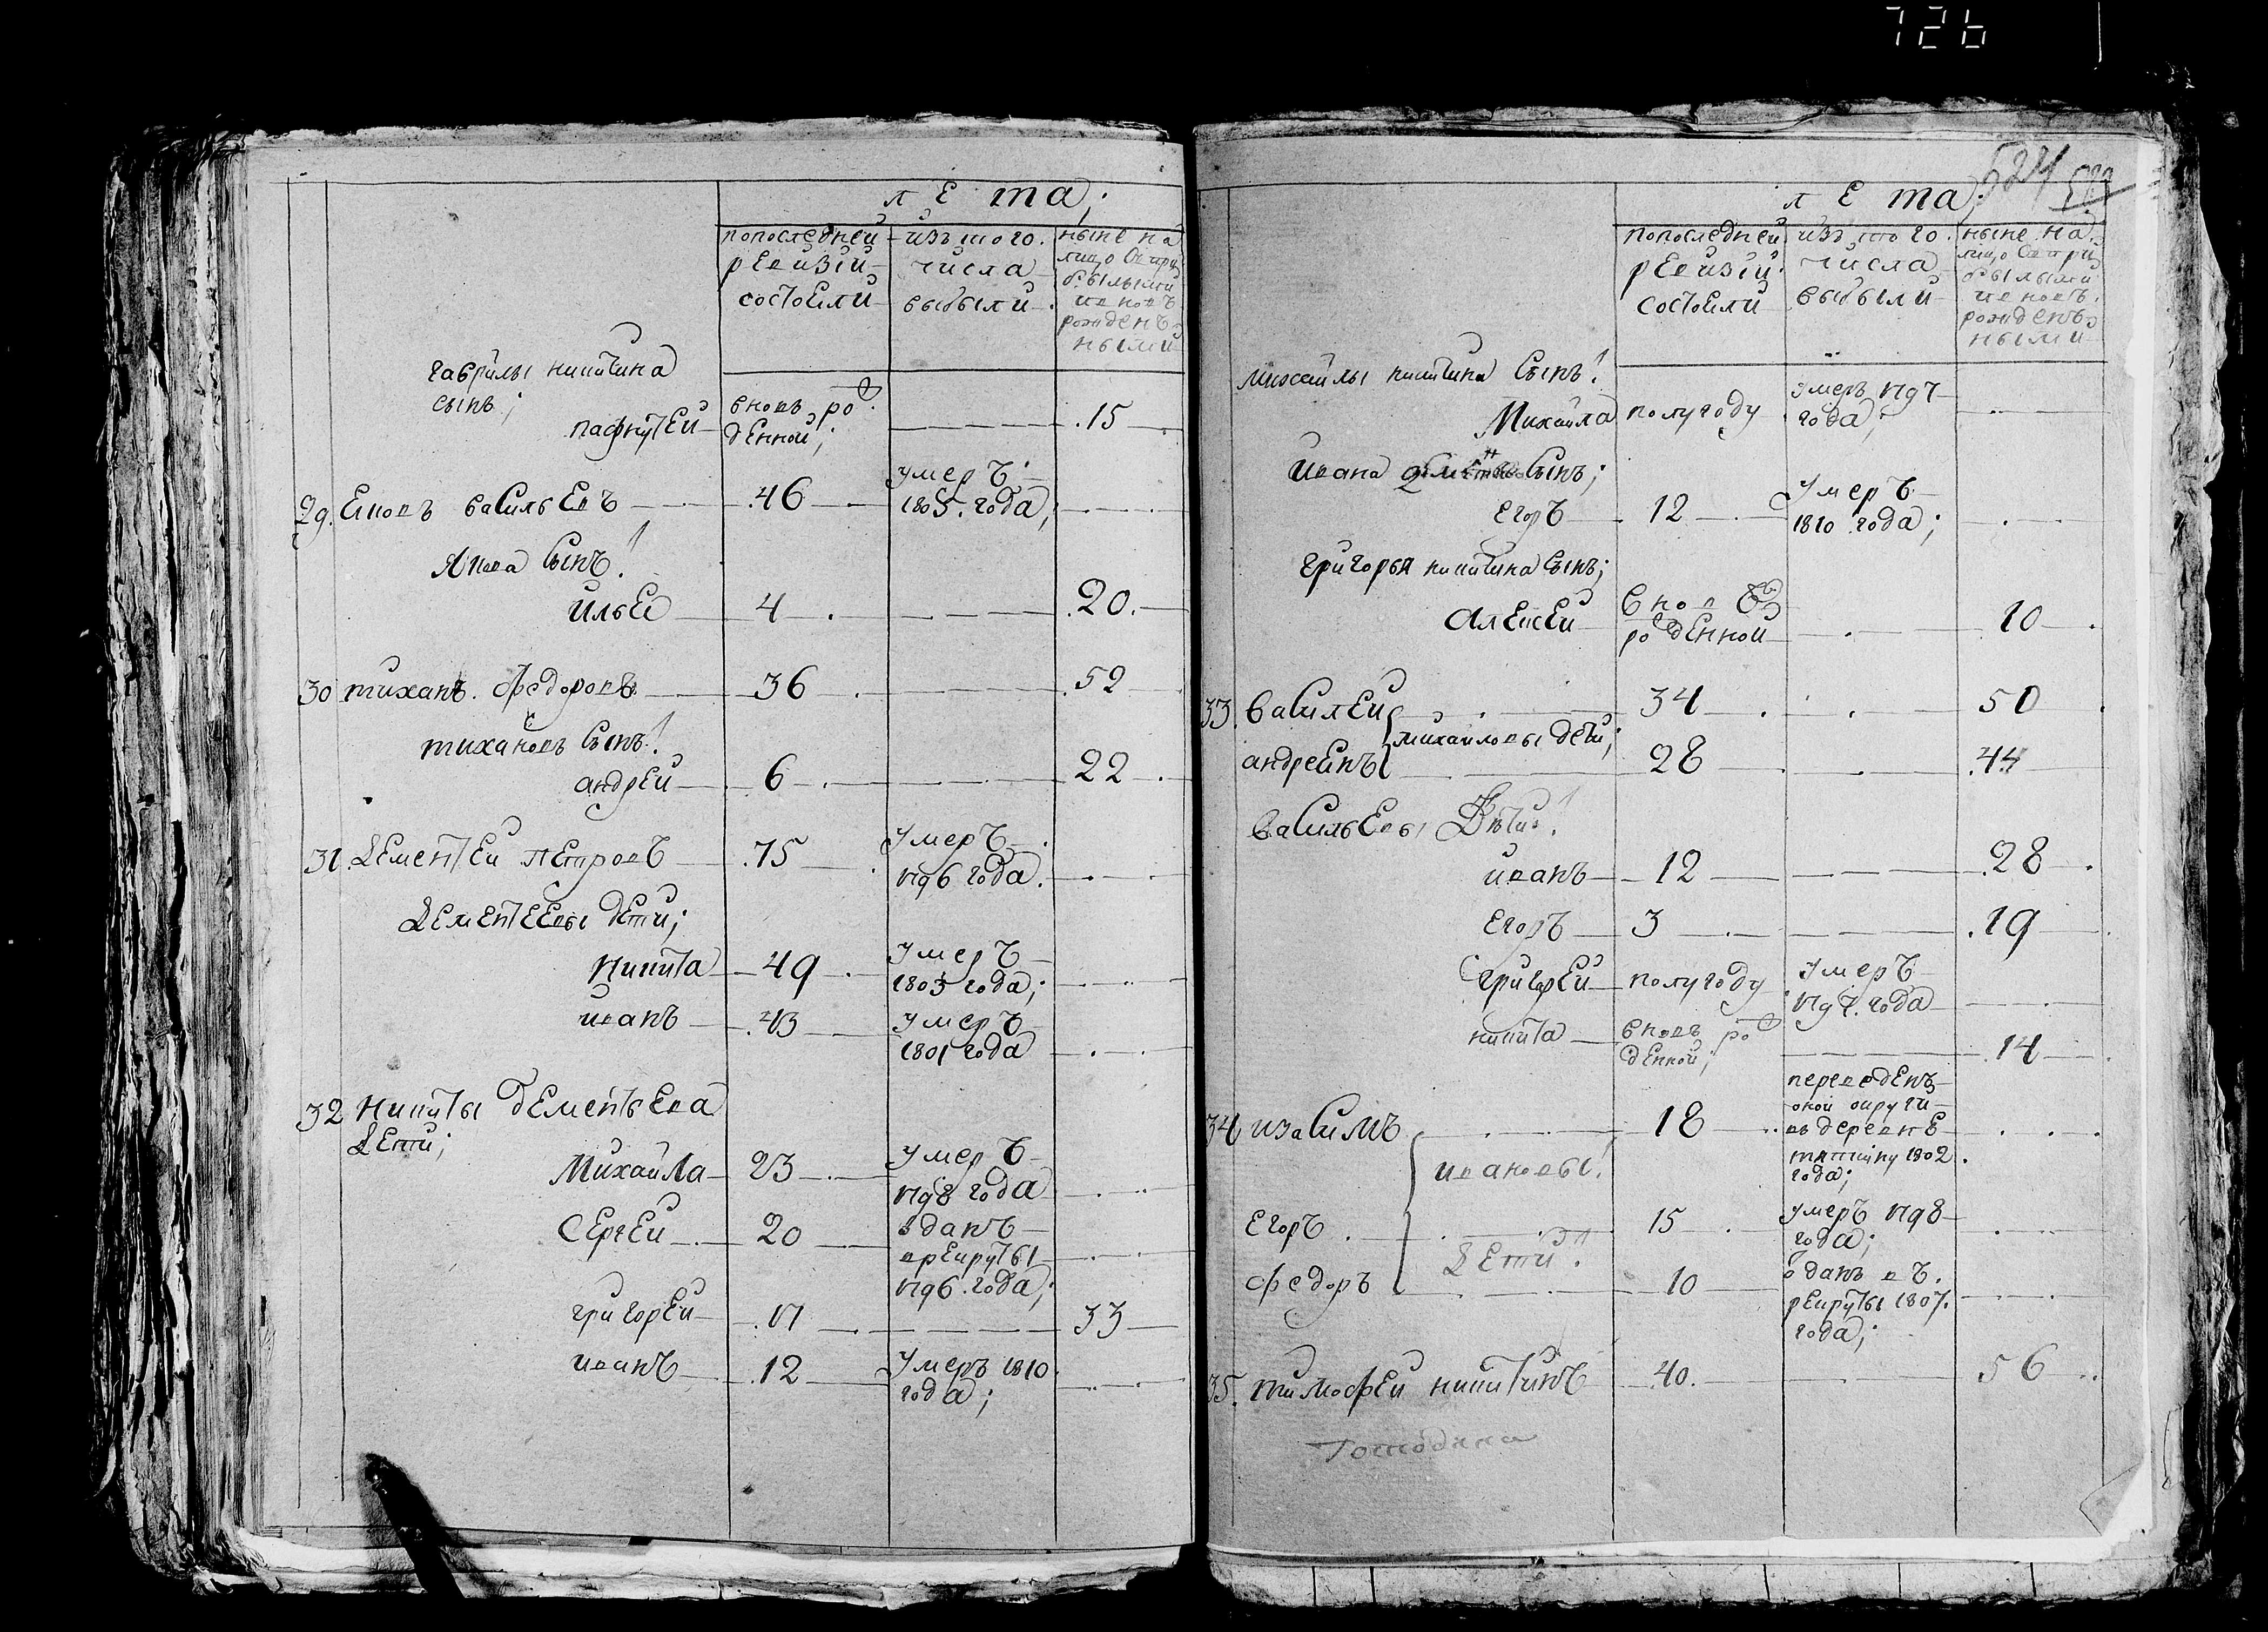 726
лета;
попоследней ревизии состоели
изъ того числа выбыли
ныне на лицо Съ прибылыми и вновь рожденъными
гаврилы никитина
сынъ;
пафнутей вновь рожденной; 15
29. Яковъ васильевъ 46 умеръ 1805. года;
Якова сынъ!
илья 4 20.
30 тиханъ. федоровъ 36 52
тихановъ сынъ!
андрей 6 22
31. Дементей петровъ 75 умеръ 1796 года.
Дементеевы дети;
Никита 49 умеръ 1805 года;
иванъ 43 умеръ 1801 года
32 Никиты дементьева
Дети;
Михайла 23 умеръ 1798 года
Сергей 20 одапъ врекруты 1796. года;
григорей 17 33
иванъ 12 умеръ 1810 года;
524
лета;
попоследней ревизии состоели
изъ того числа выбыли
ныне на лицо Съ прибылыми и вновь рожденъными
михайлы никитина Сынъ!
Михайла полугоду умеръ 1797 года;
ивана Сынъ;
егоръ 12 умеръ 1810 года;
григорья никитина Сынъ;
Алексей вновь рожденной 10
33 василей 34 50
михайловы дети;
андреянъ 28 44
васильевы Дети!
иванъ 12 28
егоръ 3 19
григорей полугоду умеръ 1797. года
никита вновь рожденной; 14
34 изасимъ 18 переведенъ оной округи въ деревнЕ 1802 года;
ивановы!
егоръ 15 умеръ 1798 года;
Дети!
федоръ 10 оданъ въ рекруты 1807. года;
35. тимофей никитинъ 40. 56